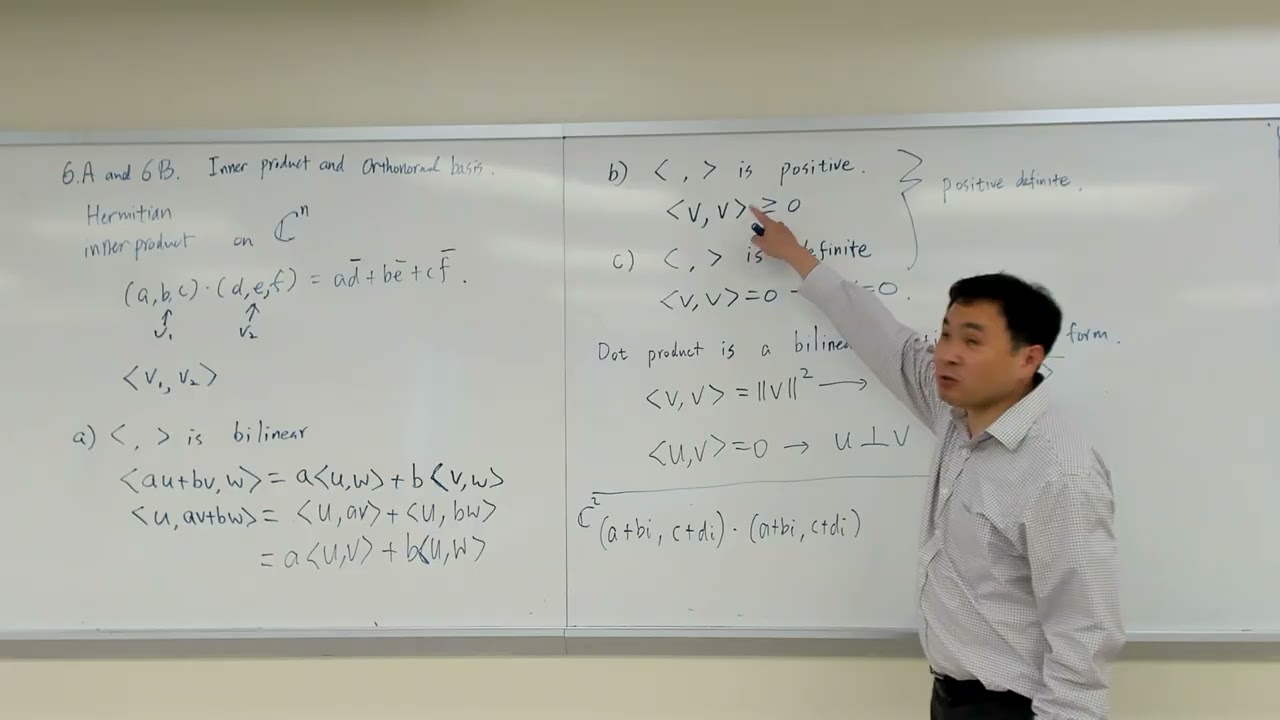 6.A and 6B. Inner product and Orthonormal basis.
Hermitian
inner product on ℂⁿ
(a,b,c)·(d,e,f) = ad̄ + bē + cf̄.
↑ ↑
v₁ v₂
<v₁, v₂>
a) < , > is bilinear
<au+bv, w> = a<u,w> + b<v,w>
<u, av+bw> = <u,av> + <u,bw>
= a<u,v> + b<u,w>
b) < , > is positive.
<v,v> ≥ 0
positive definite.
c) < , > is definite
<v,v>=0 =0.
Dot product is a form.
<v,v> = ||v||² →
<u,v>=0 → u⊥v
ℂ² (a+bi, c+di)·(a+bi, c+di)